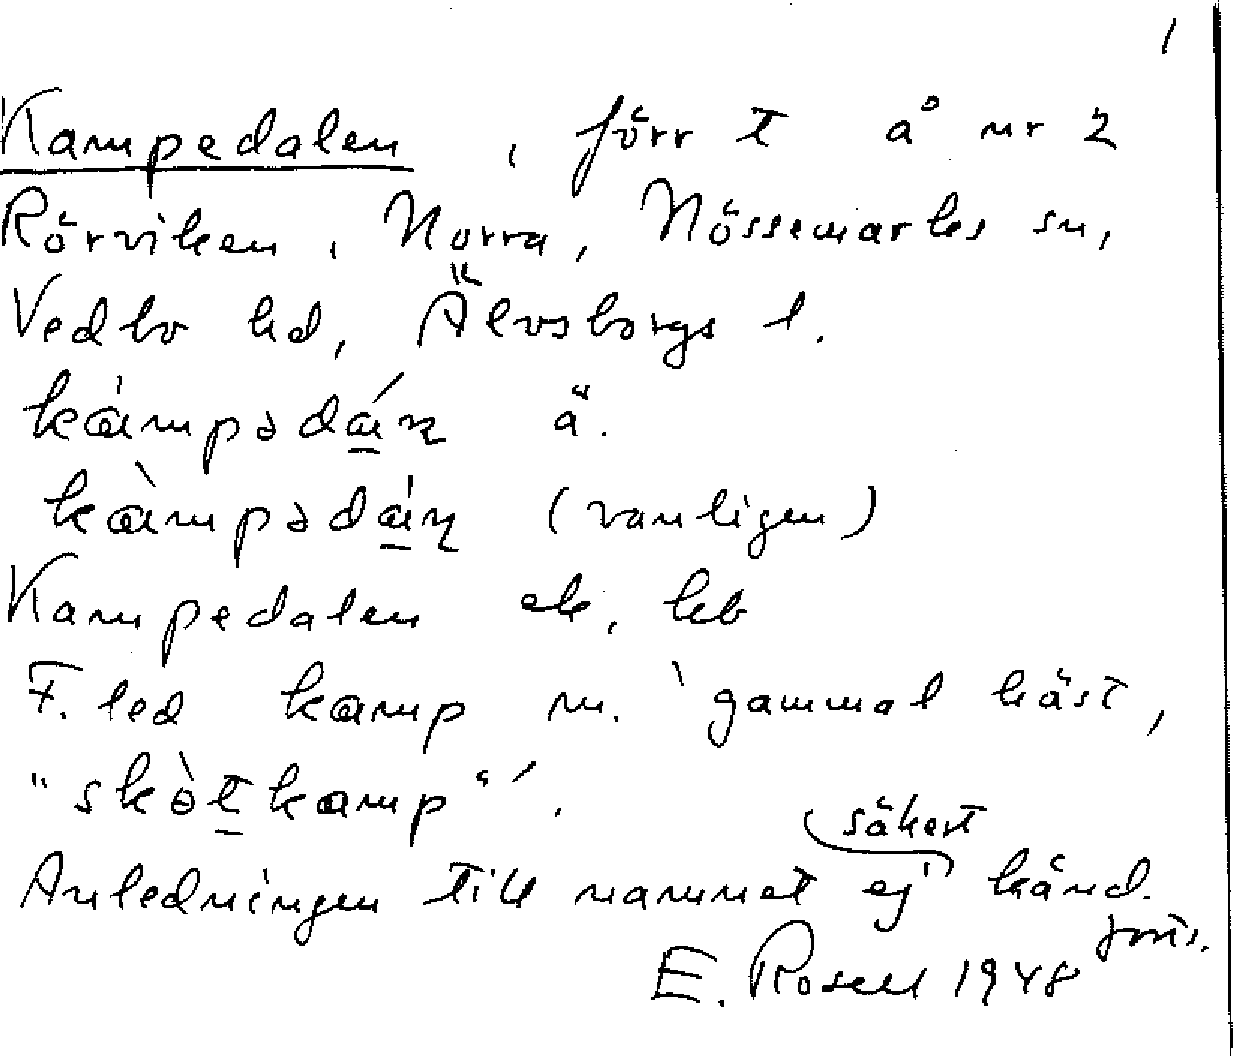 1
Kampedalen, förr t å nr 2
Rörviken, Norra, Nössemarks sn,
Vedbo hd, Älvsborgs l.
ä.
(vanligen)
Kampedalen ek, kb
F. led kamp m. 'gammal häst,
"skòt̲kamp"'.
säkert
Anledningen till namnet ej känd.
forts.
E. Rosell 1948